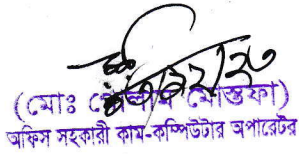 (মোঃ গোলাম মোস্তফা)
অফিস সহকারী কাম-কম্পিউটার অপারেটর